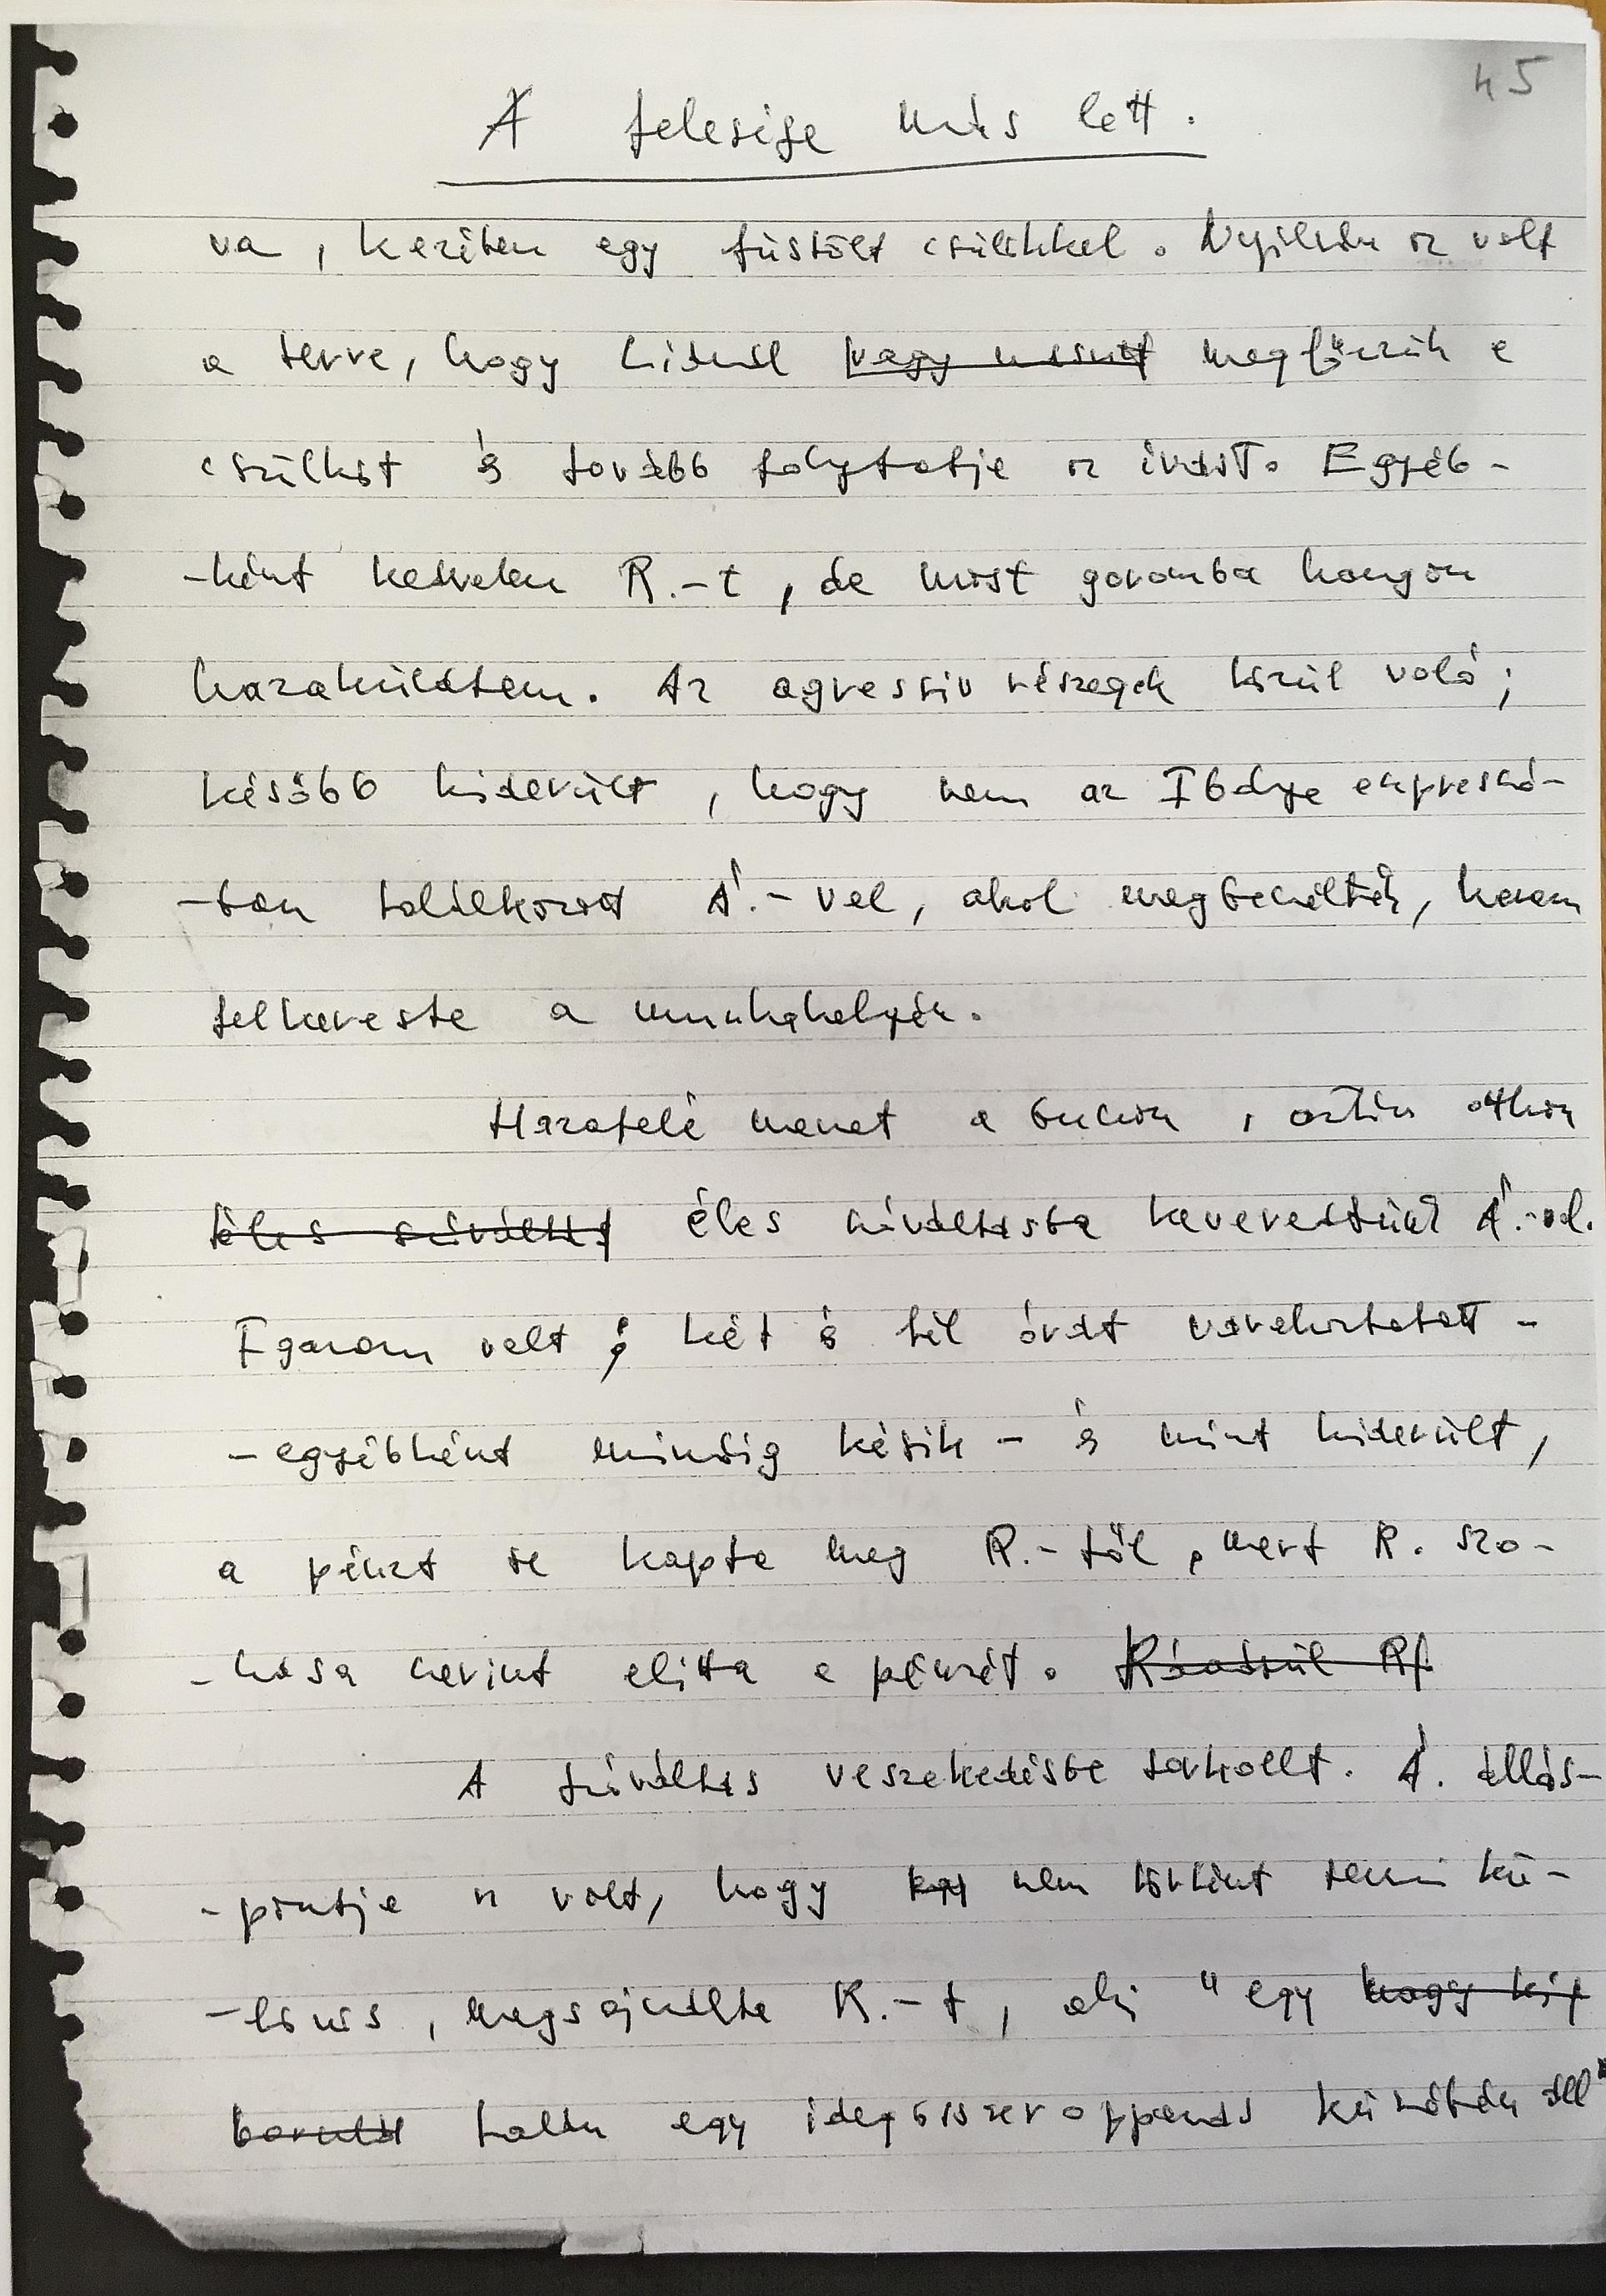 45
A felesége más lett.
va, kezében egy füstölt csülökkel. Nyilván az volt
a terve, hogy nálunk vagy megfőzzük a
csülköt és tovább folytatja az ivást. Egyéb-
-ként kedvelem R.-t, de most goromba hangon
hazaküldtem. Az agressiv részegek közül való;
később kiderült, hogy nem az Ibolya expresszó-
-ban találkozott Á.-val, ahol megbeszélték, hanem
felkereste a munkahelyén.
Hazafelé menet a buszon, aztán otthon
éles szóváltás éles szóváltásba keveredtünk Á.-val.
Igazam volt; két és fél órát várakoztatott -
- egyébként mindig késik - és mint kiderült,
a pénzt se kapta meg R.-től, mert R. szo-
-kása szerint elitta a pénzét. Ráadásul R
A szóváltás veszekedésbe torkollt. Á. állás-
-pontja az volt, hogy nem történt semmi kü-
-lönös, megsajnálta R.-t, aki "egy hogy
borult talán egy idegösszeroppanás küszöbén áll"